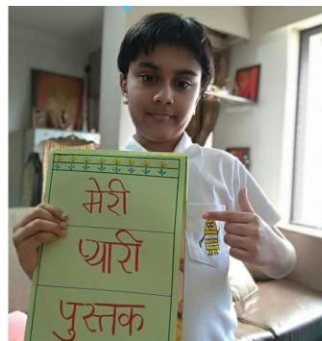 मेरी
प्यारी
पुस्तक